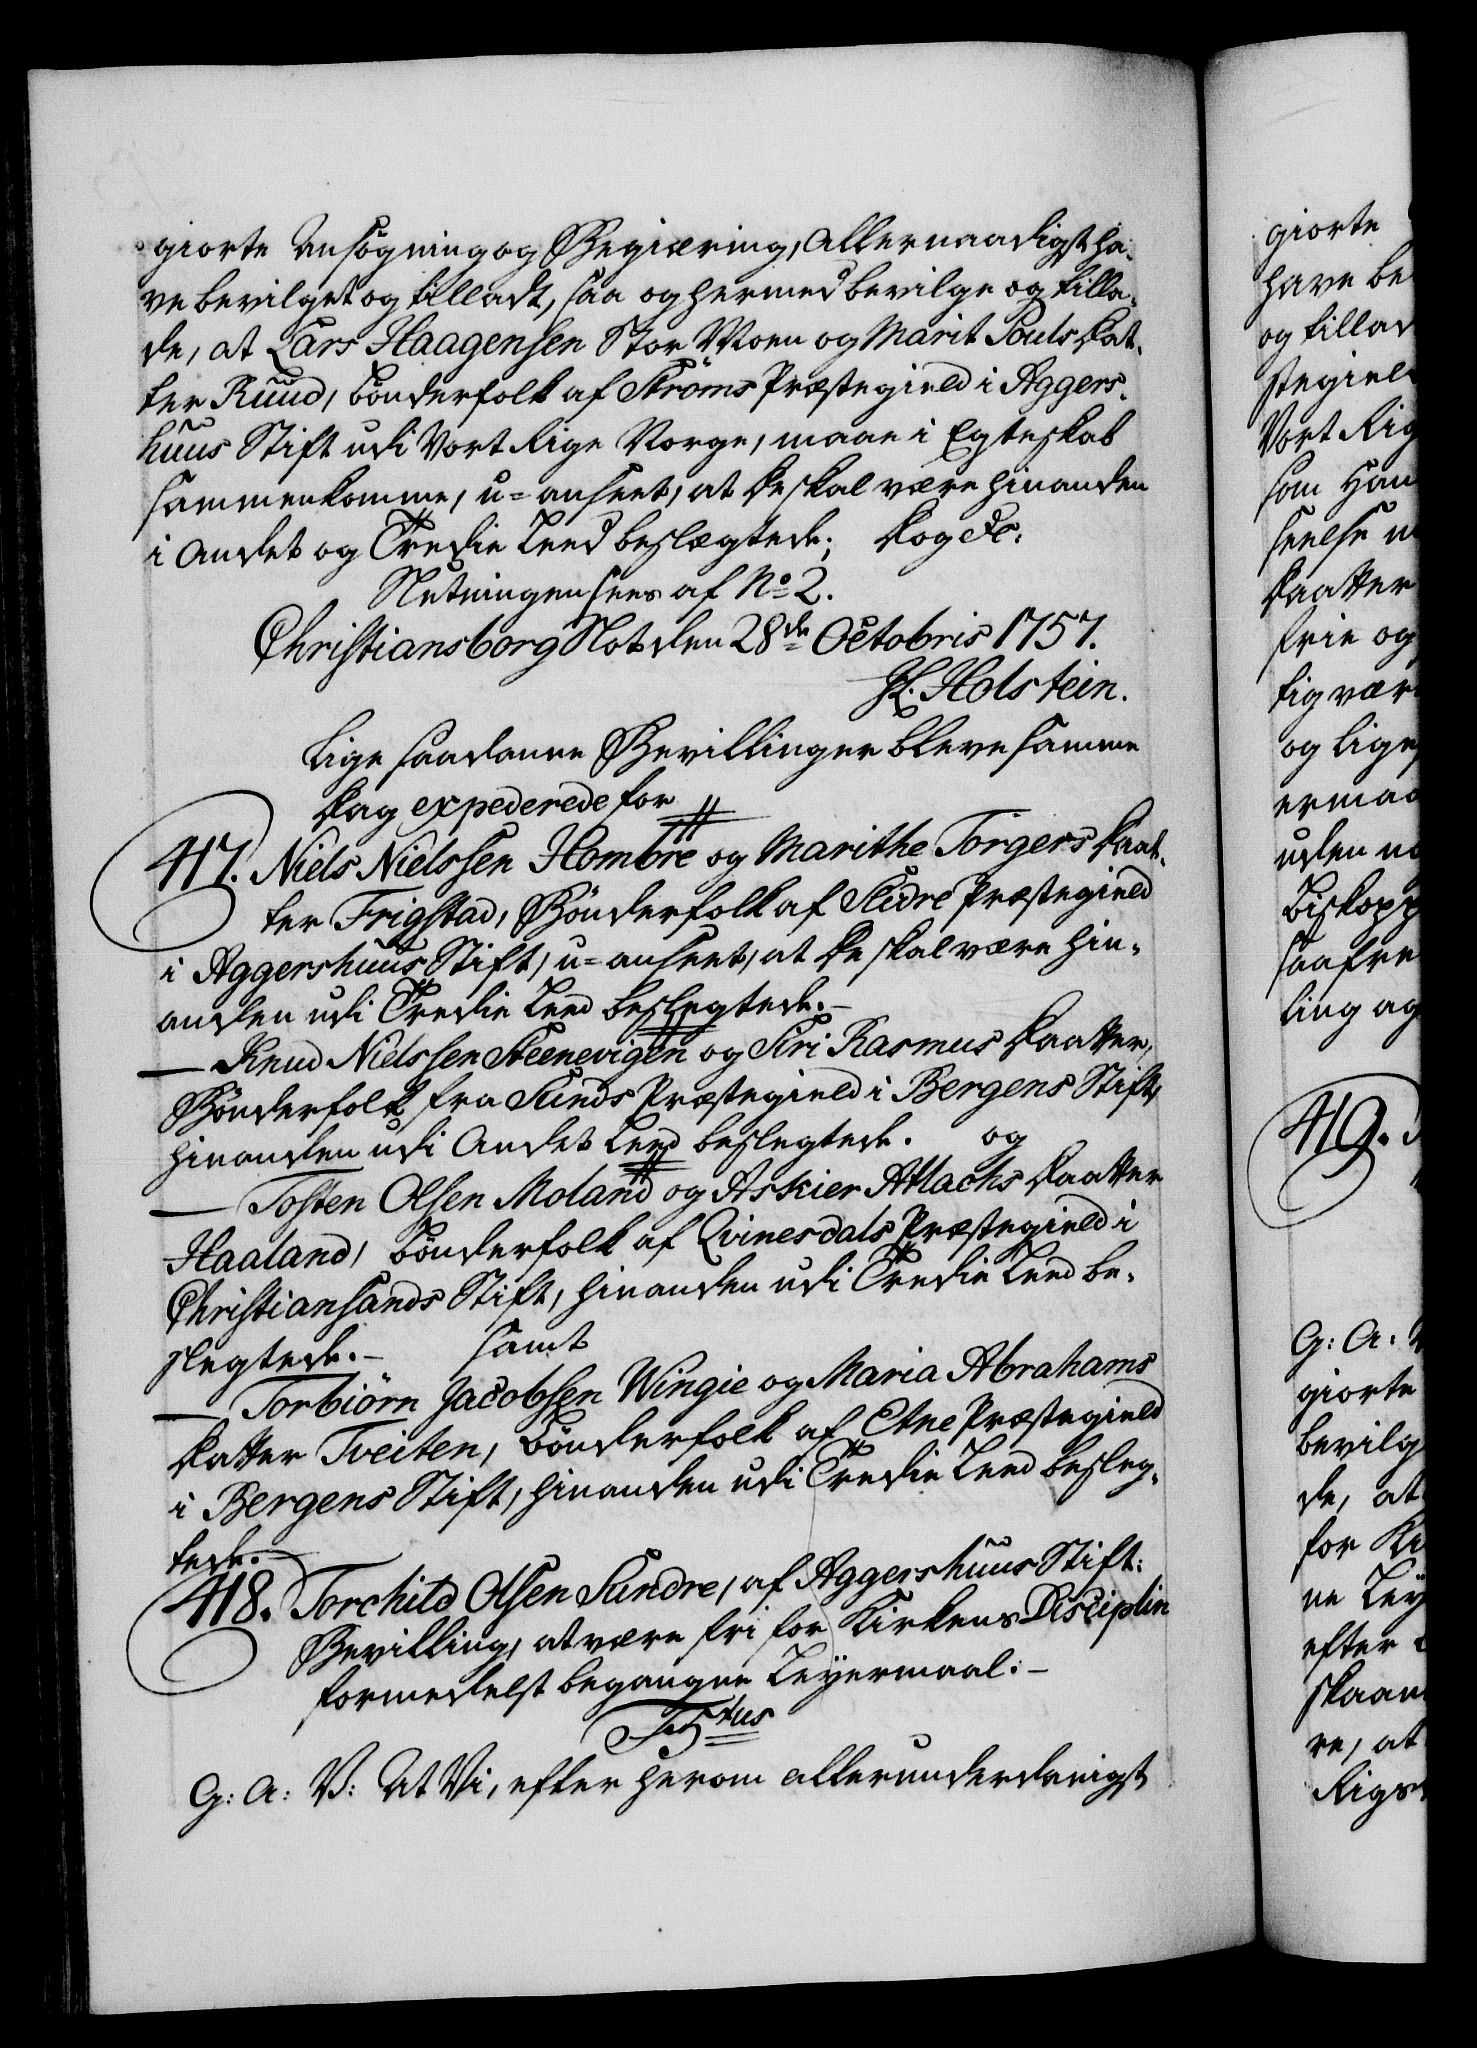 giorte Ansögning og Begiæring, Allernaadigst ha-
ve bevilget og tilladt, saa og hermed bevilge og tilla-
de, at Lars Haagensen Stor Moen og Marit Pouls Dat-
ter Ruud, Bönderfolk af Ströms Præstegield i Aggers-
huus Stift udi Vort Rige Norge, maae i Egteskab
sammenkomme, u-anseet, at de skal være hinanden
i Andet og Tredie Leed beslægtede; Dog &c:
Slutningen sees af No 2.
Christiansborg Slot den 28de Octobris 1757.
JL. Holstein.
Lige saadanne Bevillinger bleve samme
Dag expederede for
417. Niels Nielssen Hombre og Marithe Torgers Daat-
ter Frigstad, Bönderfolk af Slidre Præstegield
i Aggershuus Stift, u-anseet, at de skal være hin-
anden udi Tredie Leed beslegtede.-
— Knud Nielssen Steenevigen og Siri Rasmus Daatter,
Bönderfolk fra Sunds Præstegield i Bergens Stift,
hinanden udi Andet Leed beslegtede. og
— Tosten Olsen Moland og Askier Atlachs Daatter
Haaland, Bönderfolk af Qvinesdals Præstegield i
Christiansands Stift, hinanden udi Tredie Leed be-
slegtede.- samt
— Torbiörn Jacobsen Wingie og Maria Abrahams
Datter Tveiten, Bönderfolk af Etne Præstegield
i Bergens Stift, hinanden udi Tredie Leed besleg-
tede.-
418. Torchild Olsen Sundre, af Aggershuus Stift:
Bevilling, at være fri for Kirkens Disciplin
formedelst begangne Leyermaal.-
F5tus
G: A: V: At Vi, efter herom allerunderdanigst
giorte
have be
og tillad
stegiel
Vort Rig
som Han
seelse
Daatter
frie og
tig vær
og lige
ermaa
uden
Biskopp
saafre
ling ag
419.
G: A:
giorte
bevilg
de, at
for Ki
ne Ley
efter
skaan
re, at
Rigs